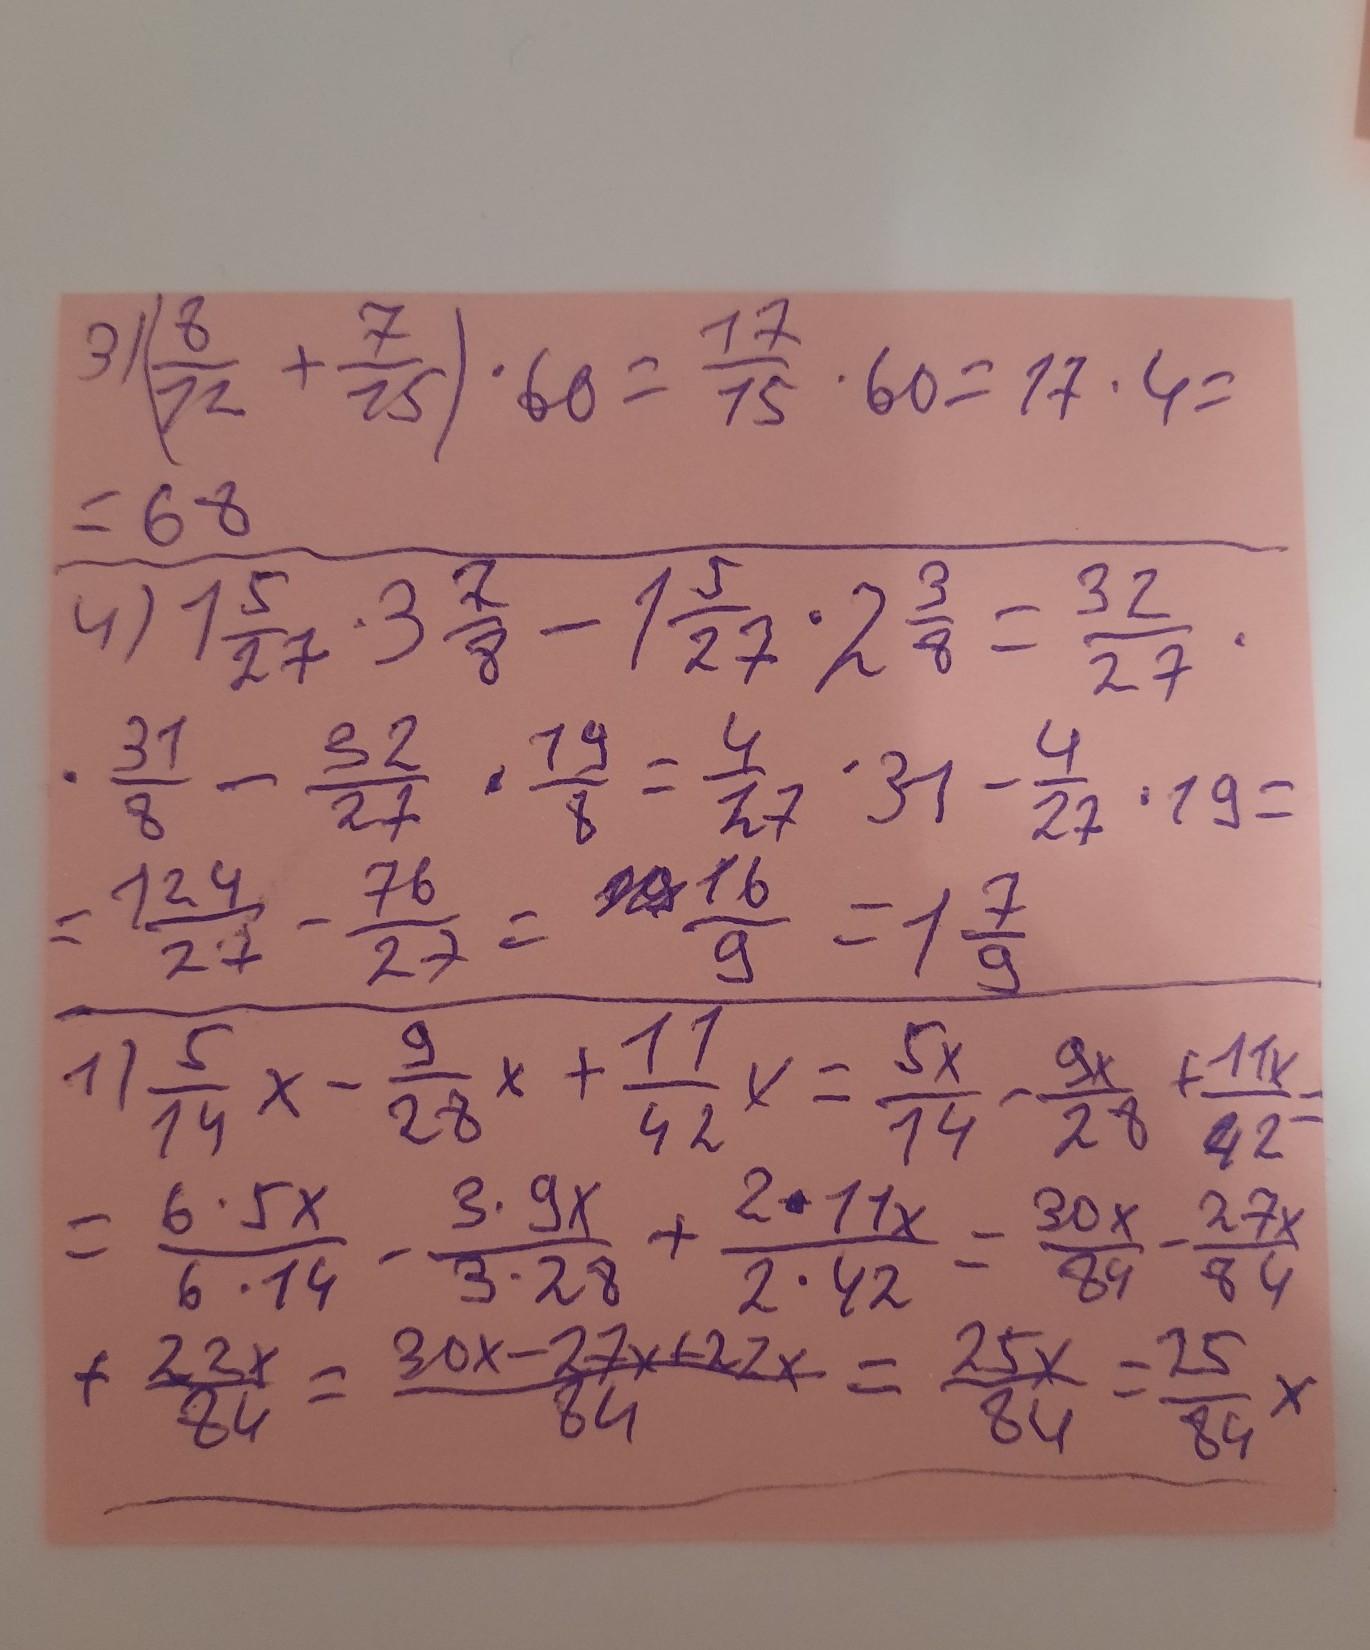 3) (8/12 + 7/15) · 60 = 17/15 · 60 = 17 · 4 =
= 68
4) 1 5/27 · 3 7/8 − 1 5/27 · 2 3/8 = 32/27 ·
· 31/8 − 32/27 · 19/8 = 4/27 · 31 − 4/27 · 19 =
= 124/27 − 76/27 = 16/9 = 1 7/9
1) 5/14 x − 9/28 x + 11/42 x = 5x/14 − 9x/28 + 11x/42 =
= 6·5x/6·14 − 3·9x/3·28 + 2·11x/2·42 = 30x/84 − 27x/84
+ 22x/84 = 30x−27x+22x/84 = 25x/84 = 25/84 x